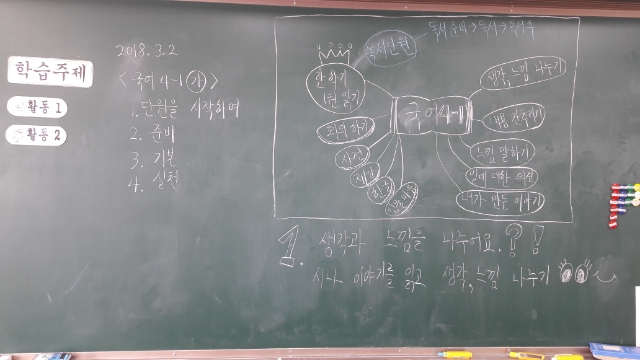 학습주제
활동 1
활동 2
2018. 3. 2
<국어 4-1 ㉮>
1. 단원을 시작하며
2. 준비
3. 기본
4. 실천
독서단원
독서 준비→독서→독서 후
한 학기
1권 읽기
회의하기
사전
제안
한글
국어
생각, 느낌 나누기
내용 간추리기
느낌 말하기
일에 대한 의견
내가 만든 이야기
1. 생각과 느낌을 나누어요. ? !
시나 이야기를 읽고 생각, 느낌 나누기